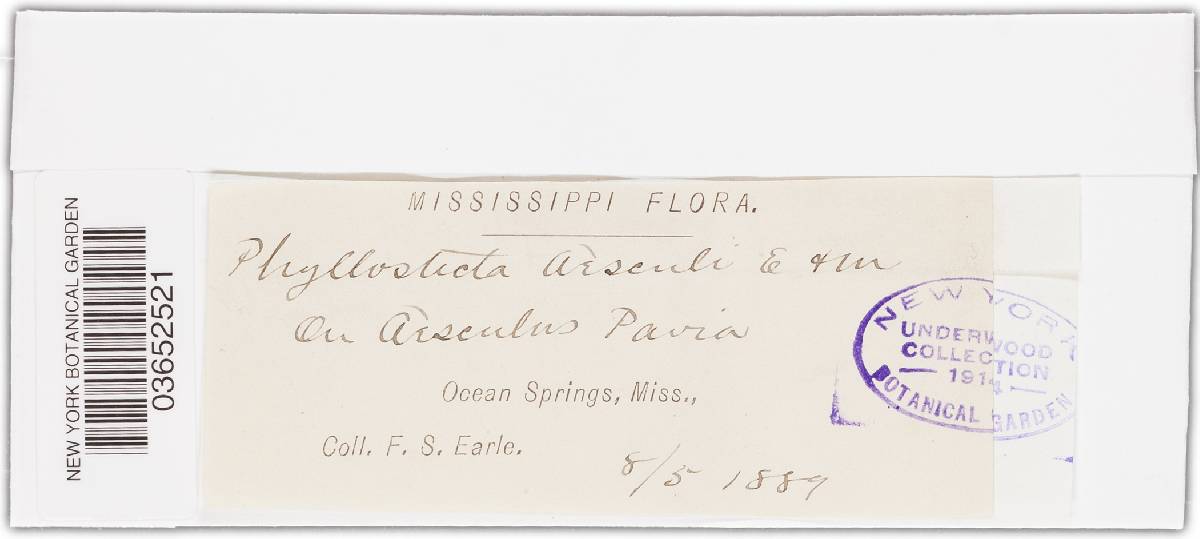 MISSISSIPPI FLORA.
Phyllosticta Aesculi E & M
On Aesculus Pavia
Ocean Springs, Miss.,
Coll. F. S. Earle.
8/5 1889
NEW YORK
UNDERWOOD
COLLECTION
1914
BOTANICAL GARDEN
NEW YORK BOTANICAL GARDEN
03652521